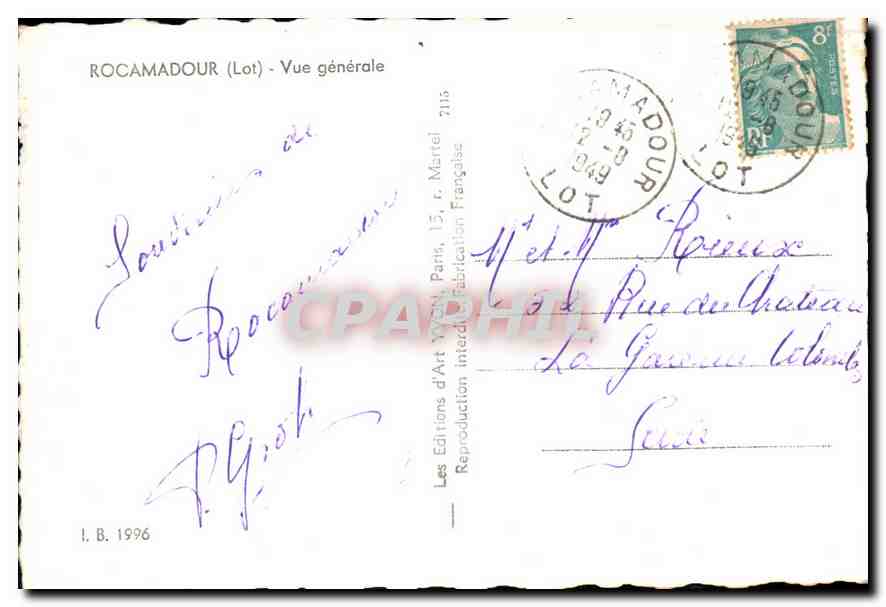 ROCAMADOUR (Lot) - Vue générale
Souvenirs de
Rocamadour
P. Grob
I. B. 1996
Les Editions d'Art YVON, Paris, 15, r. Martel
Reproduction interdite Fabrication Française
7115
CPAPHIL
AMADOUR
19 45
12 -8
1949
LOT
8F
POSTES
RF
AMADOUR
1945
-8
19
LOT
Mr et Me Rieux
Rue du Chateau
La Garenne Colombes
Seine